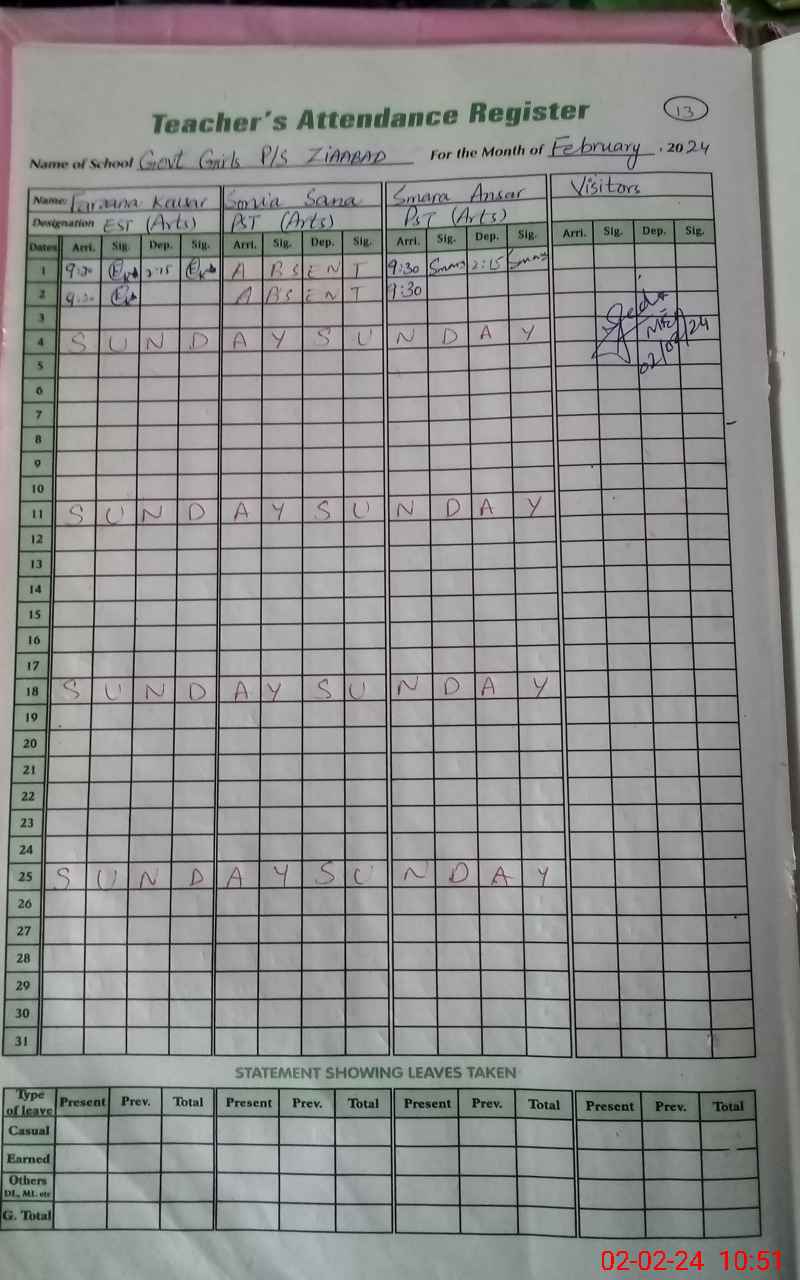 Teacher's Attendance Register 13
Name of School Govt Girls P/S ZIAABAD For the Month of February . 2024
Name: Farzana Kausar Sonia Sana Smara Ansar Visitors
Designation EST (Arts) PST (Arts) PST (Arts)
Dates Arri. Sig. Dep. Sig. Arri. Sig. Dep. Sig. Arri. Sig. Dep. Sig. Arri. Sig. Dep. Sig.
1 9:30 2:15 A B S E N T 9:30 2:15
2 9:30 A B S E N T 9:30
3
4 S U N D A Y S U N D A Y
5 02/02/24
6
7
8
9
10
11 S U N D A Y S U N D A Y
12
13
14
15
16
17
18 S U N D A Y S U N D A Y
19
20
21
22
23
24
25 S U N D A Y S U N D A Y
26
27
28
29
30
31
STATEMENT SHOWING LEAVES TAKEN
Type of leave Present Prev. Total Present Prev. Total Present Prev. Total Present Prev. Total
Casual
Earned
Others
DL, ML etc
G. Total
02-02-24 10:51